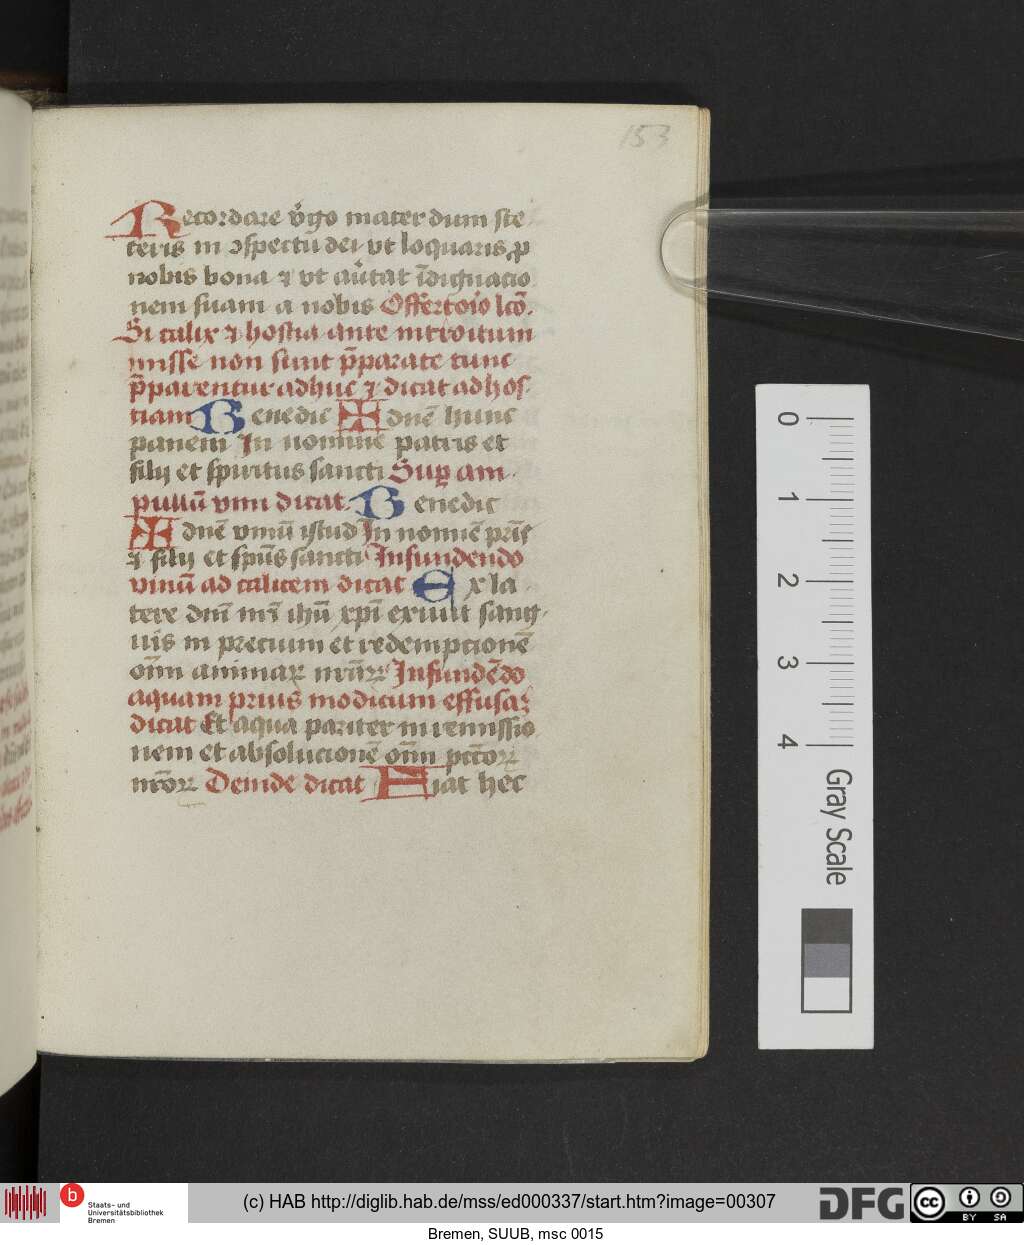 153
Recordare v̓go mater dum ste
teris in ↄspectū dei vt loquaris ꝓ
nobis bona ⁊ vt au̓tat īdignacio
nem suam a nobis Offertorio lcō.
Si calix ⁊ hostia ante introitum
misse non sunt p̄parate tunc
p̄parentur adhuc ⁊ dicat ad hos
tiam Benedic ✠ dnē hunc
panem In nomine patris et
filij et spiritus sancti Suꝑ am
pullā vini dicat Benedic
✠ dnē vinū istud In nomīe pr̄is
⁊ filij et spūs sancti Infundendo
vinū ad calicem dicat Ex la
tere dnī nr̄i ihū xp̄i exiuit sang
uis in precium et redempcionē
om̄m animaꝝ nr̄aꝝ Infundēdo
aquam prius modicum effusa
dicat Et aqua pariter in remissio
nem et absolucionē om̄m pctōꝝ
nr̄oꝝ Deinde dicat Fiat hec
0
1
2
3
4
Gray Scale
b
Staats- und
Universitätsbibliothek
Bremen
(c) HAB http://diglib.hab.de/mss/ed000337/start.htm?image=00307
DFG
cc
BY SA
Bremen, SUUB, msc 0015